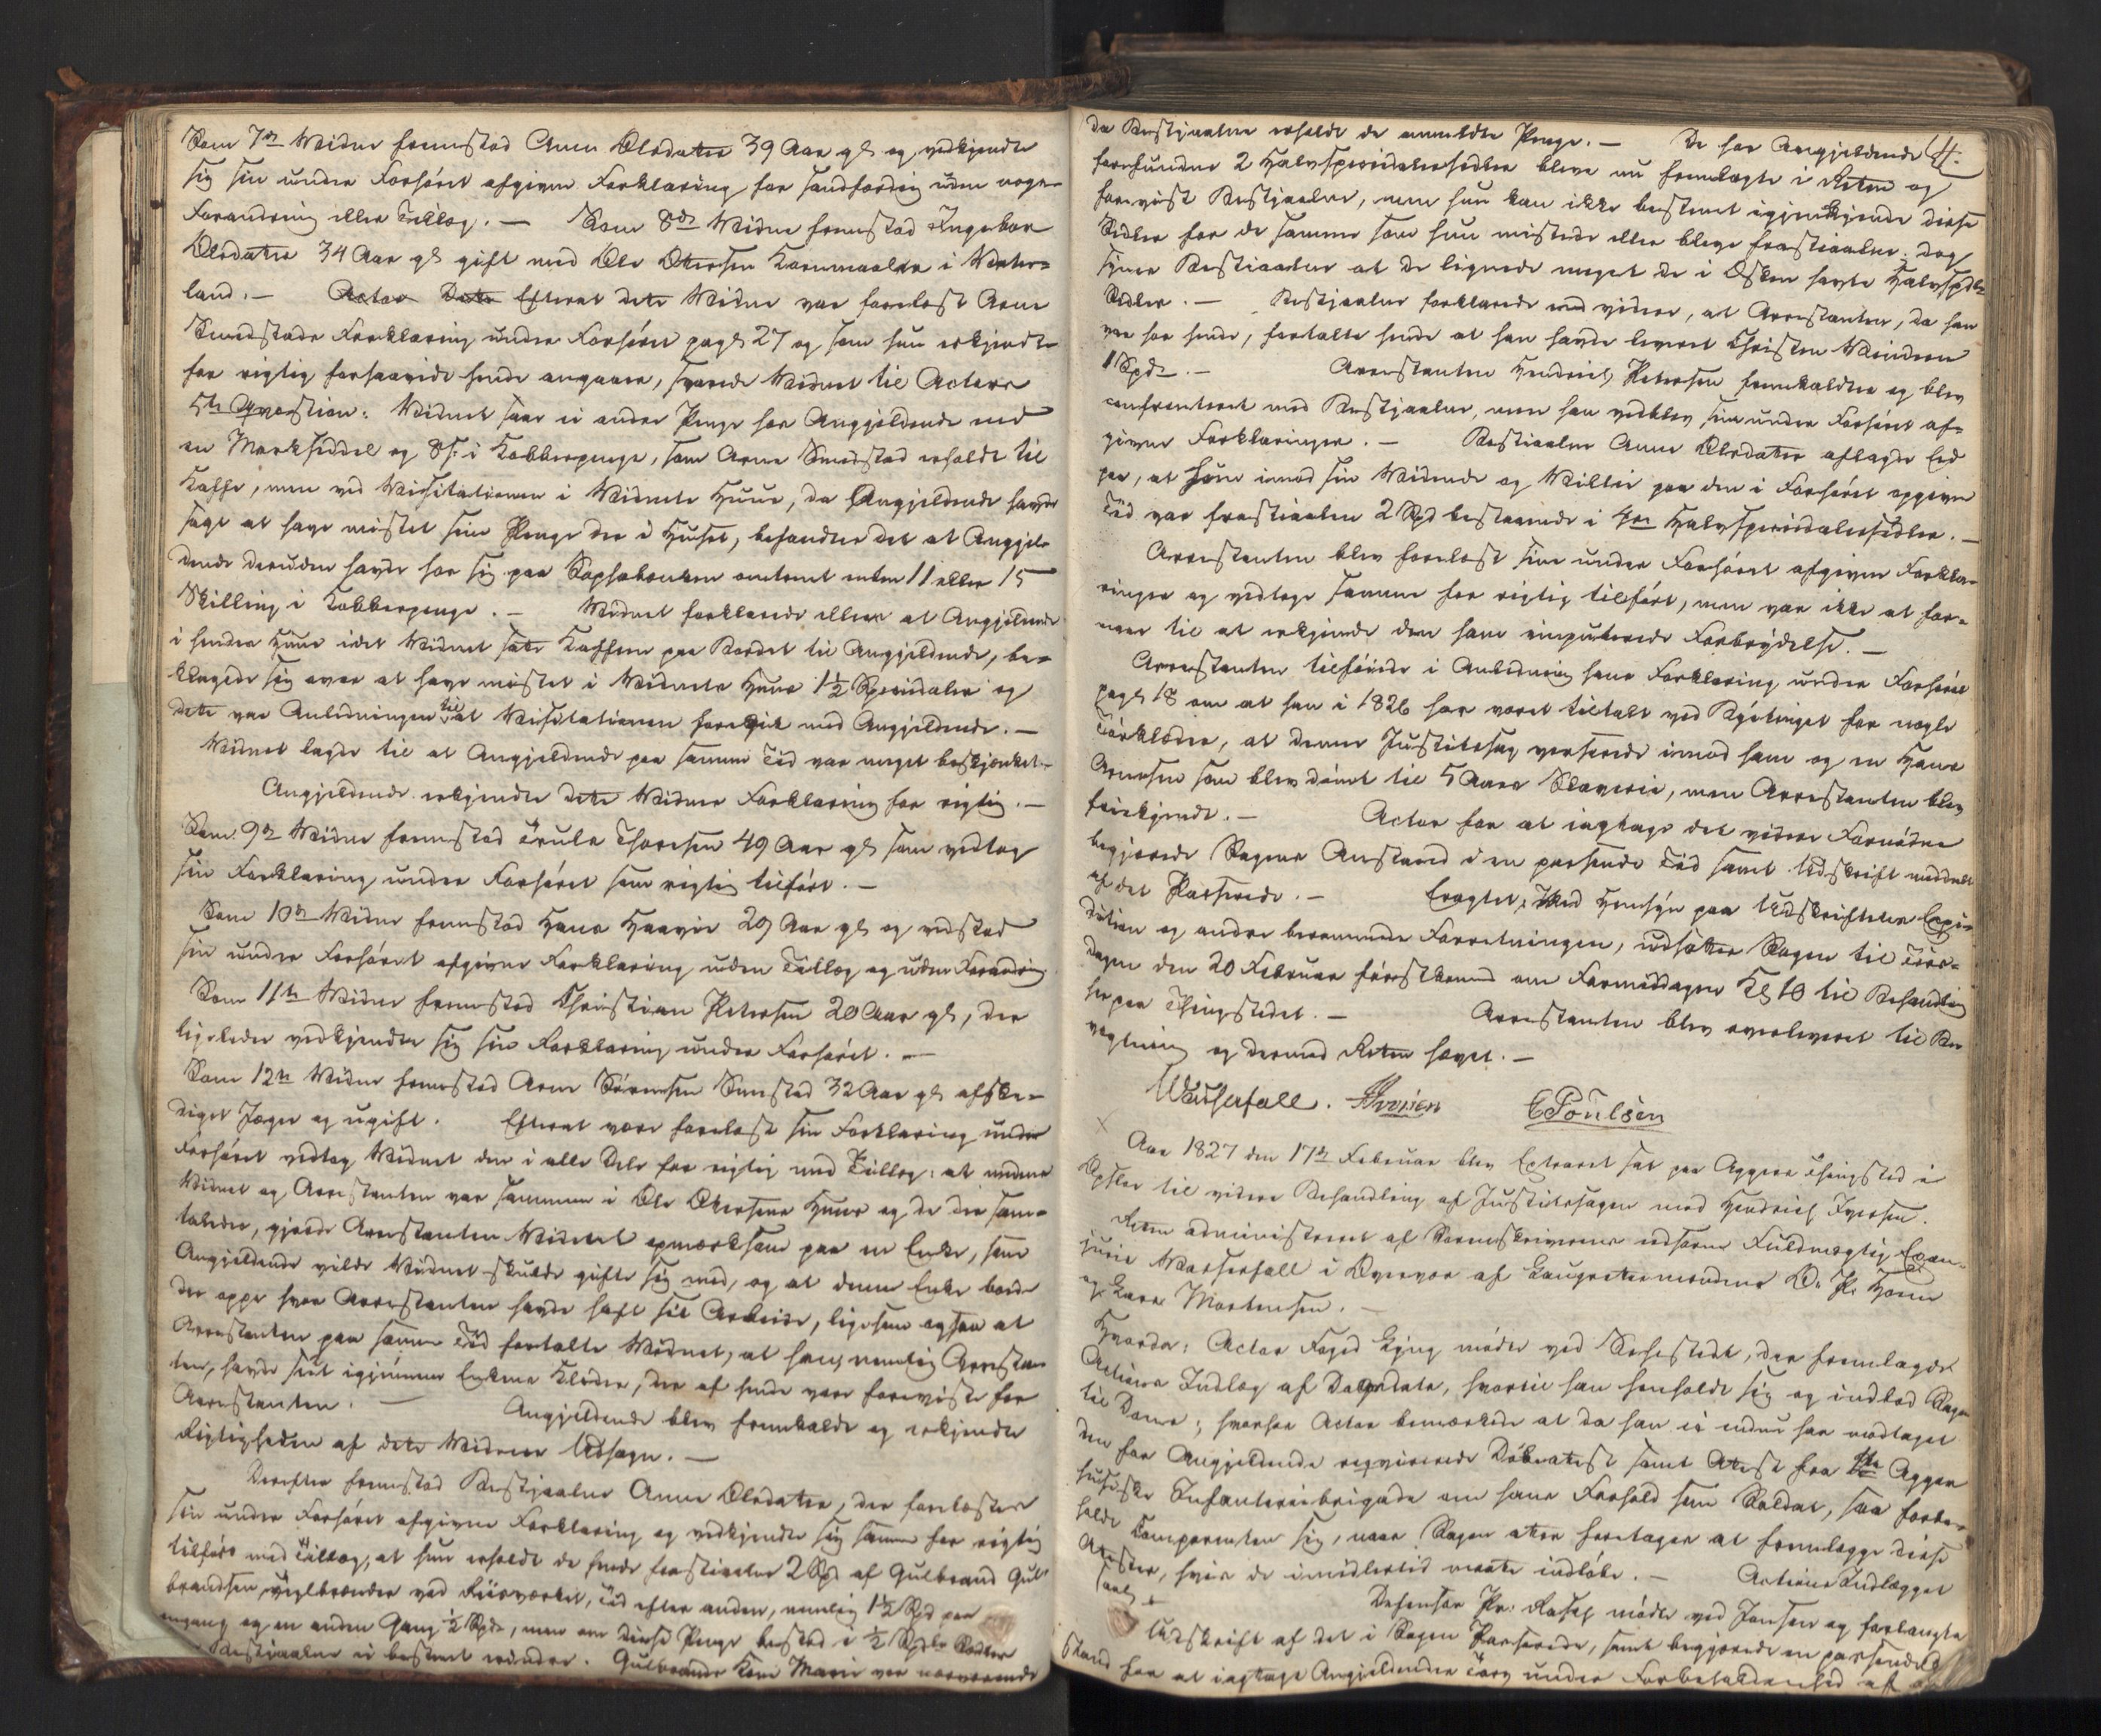 Som 7de Vidne fremstod Anne Olsdatter 39 Aar gl. og vedkjendte
sig sin under Forhøret afgivne Forklaring for sandfærdig uden nogen
Forandring eller Tillæg. — Som 8de Vidne fremstod Ingebor
Olsdatter 34 Aar gl. gift med Ole Ottersen Kornmaaler i Vater-
land. — Efterat dette Vidne var forelæst Arne
Smedstads Forklaring under Forhøret pag. 27 og som hun erkjendte
for rigtig forsaavidt hende angaaer, svarede Vidnet til Actors
5te Qvæstion: Vidnet saae ei andre Penge hos Angjeldende end
en Markseddel og 8 s. i Kobberpenge, som Arne Smedstad erholdt til
Kaffe, men ved Visitationen i Vidnets Huus, da Angjeldende havde
sagt at have mistet sine Penge der i Huset, befandtes det at Angjel-
dende desuden havde hos sig paa Sophabænken omtrent enten 11 eller 15
Skilling i Kobberpenge. — Vidnet forklarede ellers at Angjeldende
i hendes Huus idet Vidnet satte Kaffeen paa Bordet til Angjeldende, be-
klagede sig over at have mistet i Vidnets Huus 1½ Speciedaler og
dette var Anledningen til at Visitationen foregik med Angjeldende. —
Vidnet lagde til at Angjeldende paa samme Tid var meget beskjænket. —
Angjeldende erkjendte dette Vidnes Forklaring for rigtig. —
Som 9de Vidne fremstod Truls Thoresen 49 Aar gl. som vedtog
sin Forklaring under Forhøret som rigtig tilført. —
Som 10de Vidne fremstod Hans Haavie 29 Aar gl. og vedstod
sin under Forhøret afgivne Forklaring uden Tillæg og uden Forandring.
Som 11te Vidne fremstod Christian Petersen 20 Aar gl., der
ligeledes vedkjendte sig sin Forklaring under Forhøret. —
Som 12te Vidne fremstod Arne Sørensen Smestad 32 Aar gl. afske-
diget Jæger og ugift. Efterat være forelæst sin Forklaring under
Forhøret vedtog Vidnet den i alle Dele for rigtig med Tillæg: at medens
Vidnet og Arrestanten var sammen i Ole Ottersens Huus og de der sam-
talede, gjorde Arrestanten Vidnet opmærksom paa en Enke, som
Angjeldende vilde Vidnet skulde gifte sig med, og at denne Enke boede
der oppe hvor Arrestanten havde havt sit Arbeide, ligesom ogsaa at
Arrestanten paa samme Tid fortalte Vidnet, at han, nemlig Arrestan-
ten, havde seet igjennem Enkens Klæder, der af hende vare foreviste for
Arrestanten. — Angjeldende blev fremkaldt og erkjendte
Rigtigheden af dette Vidnes Udsagn. —
Derefter fremstod Bestjaalne Anne Olsdatter, der forelæstes
sin under Forhøret afgivne Forklaring og vedkjendte sig samme for rigtig
tilført med Tillæg, at hun erholdt de hende frastjaalne 2 Spd. af Gulbrand Gul-
brandsen, Teglbrænder ved Riisværket, Tid efter anden, nemlig 1½ Spd. paa
engang og en anden Gang ½ Spd., men om disse Penge bestod i ½ Spd. Sedler
Bestjaalne ei bestemt erindrer. Gulbrands Kone Marie var nærværende
da Bestjaalne erholdt de anmeldte Penge. — De hos Angjeldende 4.
forefundne 2 Halvspeciedalersedler bleve nu fremlagte i Retten og
foreviist Bestjaalne, men hun kan ikke bestemt igjenkjende disse
Sedler for de samme som hun mistede eller bleve frastjaalne; dog
synes Bestjaalne at de lignede meget de i Æsken havte Halvspd.
Sedler. — Bestjaalne forklarede end videre, at Arrestanten, da han
var hos hende, fortalte hende at han havde leveret Christen Veideren
1 Spd. — Arrestanten Hendrich Petersen fremkaldtes og blev
confronteret med Bestjaalne, men han vedblev sine under Forhøret af-
givne Forklaringer. — Bestjaalne Anne Olsdatter aflagde Eed
paa, at hun imod sin Vidende og Villie paa den i Forhøret opgivne
Tid var frastjaalen 2 Spd. bestaaende i 4re Halvspeciedalersedler. —
Arrestanten blev forelæst sine under Forhøret afgivne Forkla-
ringer og vedtoge samme for rigtig tilført, men var ikke at for-
maae til at erkjende den ham imputerede Forbrydelse. —
Arrestanten tilføiede i Anledning hans Forklaring under Forhøret
pag. 18 om at han i 1826 har været tiltalt ved Byetinget for nogle
Tørklæder, at denne Justitssag verserede imod ham og en Hans
Arnesen som blev dømt til 5 Aars Slaverie, men Arrestanten blev
frikjendt. — Actor for at iagttage det videre Fornødne
begjærede Sagens Anstand i en passende Tid samt Udskrift meddeelt
af det Passerede. — Eragtet: Med Hensyn paa Udskriftens Expe-
dition og andre berammede Forretninger, udsættes Sagen til Tirs-
dagen den 20 Februar førstkomm. om Formiddagen Kl. 10 til Behandling
her paa Thingstedet. — Arrestanten blev overleveret til Be-
vogtning og dermed Retten hævet. —
Wasserfall. Iversen C Poulsen
Aar 1827 den 17de Februar blev Extraret sat paa Aggers Thingsted i
Opsloe til videre Behandling af Justitssagen mod Hendrich Iversen.
Retten administreret af Sorenskriverens edsorne Fuldmægtig Exam.
juris Wasserfall i Overvær af Laugrettesmændene O. P. Horn
og Lars Mortensen. —
Hvorda: Actor Foged Lyng mødte ved Sehestedt, der fremlagde
Actions Indlæg af Dags dato, hvortil han henholdt sig og indlod Sagen
til Doms; hvorhos Actor bemærkede at da han ei endnu har modtaget
den for Angjeldende reqvirerede Døbeattest samt Attest fra 1ste Agger-
huusiske Infanteriebrigade om hans Forhold som Soldat, saa forbe-
holdt Comparenten sig, naar Sagen atter foretages at fremlægge disse
Attester, hvis de imidlertid maatte indløbe. — Actions Indlægget
saal. +
Defensor Pr: Rasch mødte ved Jansen og forlangte
Udskrift af det i Sagen Passerede, samt begjærede en passende Ud-
stand for at iagttage Angjeldendes Tarv under Forbeholdenhed af